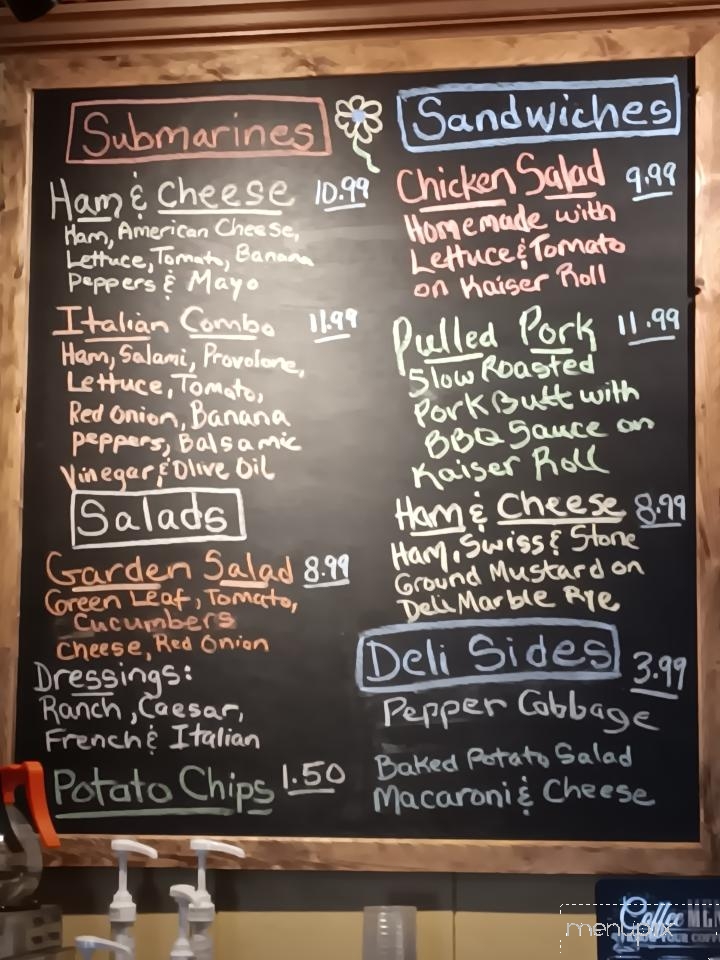 Submarines
Ham & Cheese 10.99
Ham, American Cheese,
Lettuce, Tomato, Banana
Peppers & Mayo
Italian Combo 11.99
Ham, Salami, Provolone,
Lettuce, Tomato,
Red Onion, Banana
Peppers, Balsamic
Vinegar & Olive Oil
Salads
Garden Salad 8.99
Green Leaf, Tomato,
Cucumbers
Cheese, Red Onion
Dressings:
Ranch, Caesar,
French & Italian
Potato Chips 1.50
Sandwiches
Chicken Salad 9.99
Homemade with
Lettuce & Tomato
on Kaiser Roll
Pulled Pork 11.99
Slow Roasted
Pork Butt with
BBQ Sauce on
Kaiser Roll
Ham & Cheese 8.99
Ham, Swiss & Stone
Ground Mustard on
Deli Marble Rye
Deli Sides 3.99
Pepper Cabbage
Baked Potato Salad
Macaroni & Cheese
Coffee MEN
menupix
YOUR